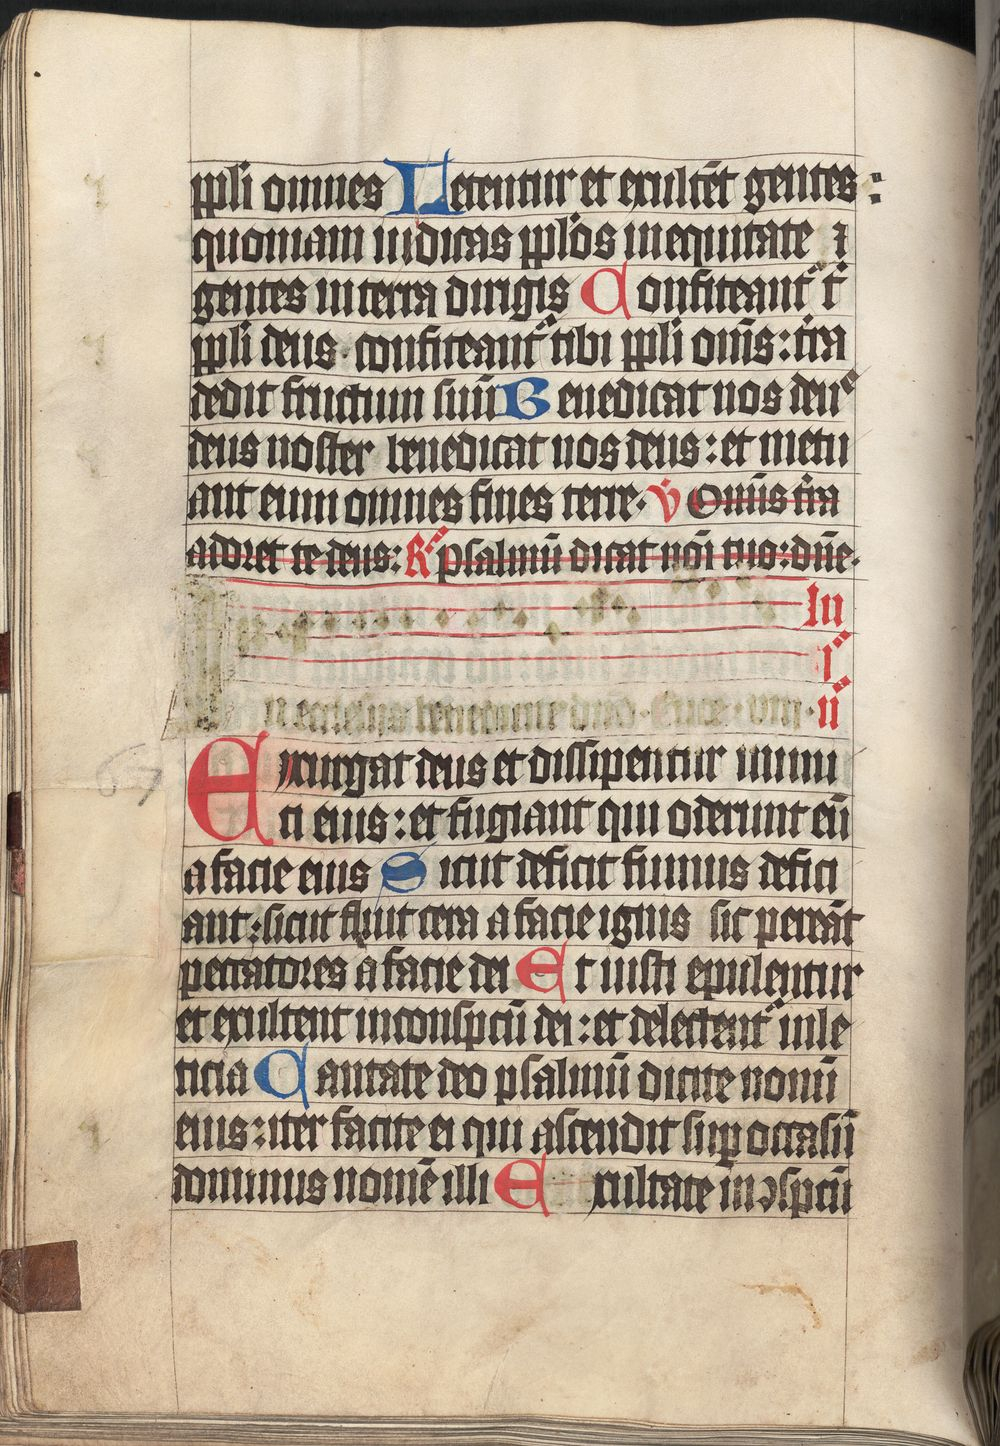 ppli omnes Letentur et exultēt gentes:
quoniam iudicas pplos in equitate ⁊
gentes in terra dirigis Confiteant᷑ t̄
ppli deus confiteant᷑ tibi ppli om̄s: t̄ra
dedit fructum suū Benedicat nos deuꝰ
deus noster benedicat nos deus: et metu
ant eum omnes fines terre. V̄ Om̄is t̄ra
adoret te deus: R᷑ psalmū dicat nōi tuo: dn̄e.
In
In ecclesiis benedicite dn̄o. Euce. vm. ii
Exurgat deus et dissipentur inimi
ci eius: et fugiant qui oderunt eū
a facie eius Sicut deficit fumus defici
ant: sicut fluit cera a facie ignis sic pereāt
peccatores a facie dei Et iusti epulentur
et exultent in conspcū dei: et delectent᷑ in le
ticia Cantate deo psalmū dicite nomī
eius: iter facite ei qui ascendit suꝑ occasū
dominus nomē illi Exultate in ɔspcū